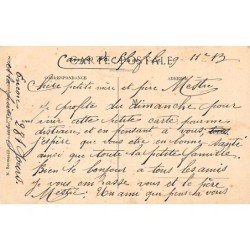 CARTE POSTALE
11-13
CORRESPONDANCE
ADRESSE
Chère petite mère et père Mestre
je profite du dimanche pour
vous cette petite carte pour me
distraire, et en pensant à vous
J'espère que vous etes en bonne santé
ainsi que toute la petite famille
Bien le bonjour à tous les amis
je vous embrasse vous et le père
Mestre. Un ami que pense à vous
Encore 981 jours